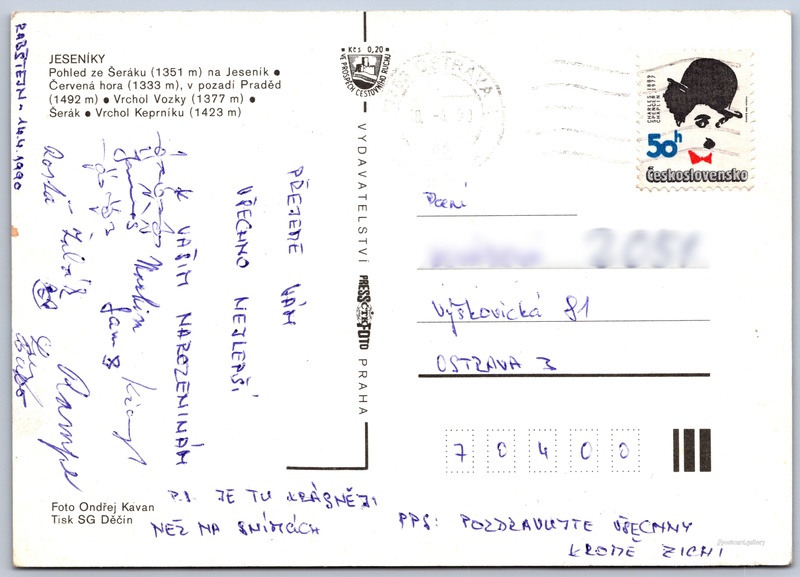 JESENÍKY
Pohled ze Šeráku (1351 m) na Jeseník ●
Červená hora (1333 m), v pozadí Praděd
(1492 m) ● Vrchol Vozky (1377 m) ●
Šerák ● Vrchol Keprníku (1423 m)
RABŠTEJN - 14.4.1990
PŘEJEME VÁM
VŠECHNO NEJLEPŠÍ
K VAŠIM NAROZENINÁM
Martin
P.S. JE TU KRÁSNĚJI
NEŽ NA SNÍMCÍCH
PPS: POZDRAVUJTE VŠECHNY
KROMĚ ZICHI
Foto Ondřej Kavan
Tisk SG Děčín
Kčs 0,20
VE PROSPĚCH CESTOVNÍHO RUCHU
VYDAVATELSTVÍ PRESSFOTO PRAHA
ČTK
OSTRAVA
CHARLES 1889
SPENCER 1977
CHAPLIN
50h
Československo
Paní
2051
Výškovická 81
OSTRAVA 3
70400
Postcard.gallery